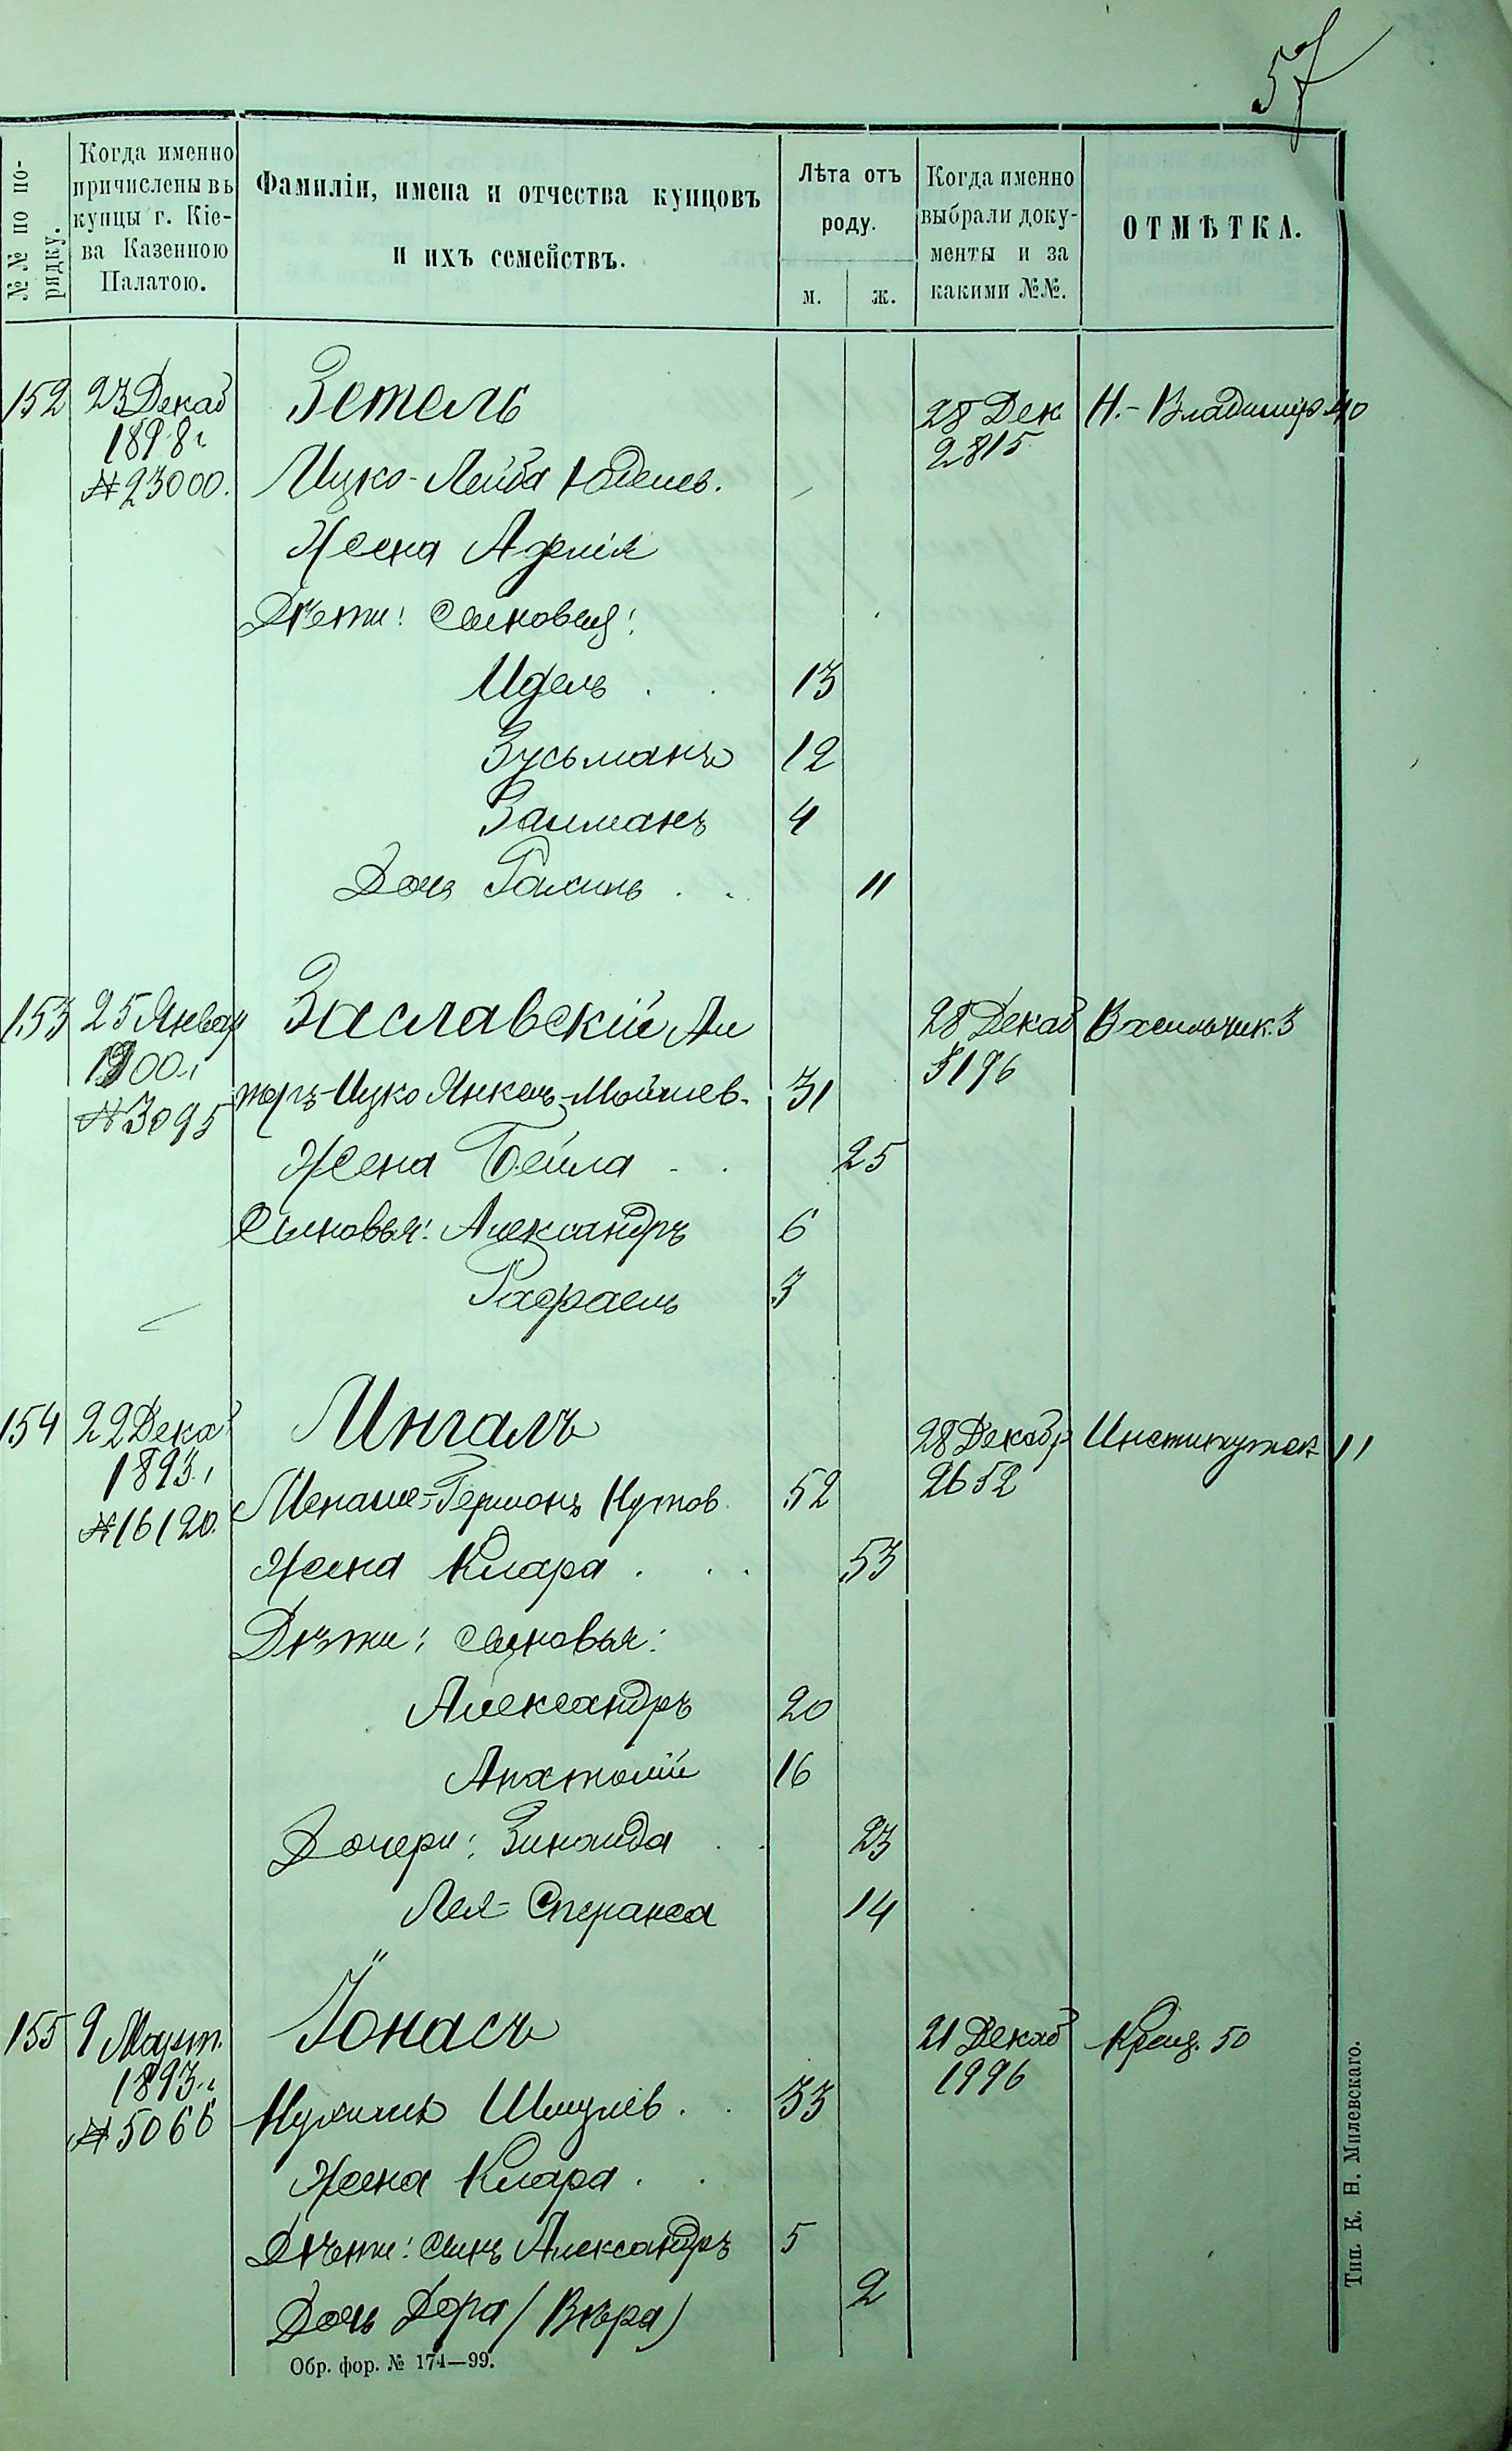 57
№№ по по-
рядку.
Когда именно
причислены въ
купцы г. Кіе-
ва Казенною
Палатою.
Фамиліи, имена и отчества купцовъ
и ихъ семействъ.
Лѣта отъ
роду.
м. ж.
Когда именно
выбрали доку-
менты и за
какими №№.
ОТМѢТКА.
152 23 Декаб Зетель 28 Дек Н.-Владимір 40
1898 г 2815
№ 23000. Ицко-Лейба Юделев.
Жена
Дѣти: Сыновья:
Идель 13
Зусьманъ 12
Залманъ 4
Дочь 11
153 25 Январ Заславскій Ал 28 Декаб Васильчик. 3
1900 г 3196
№ 3095 теръ-Ицко Янкель-Мойшев. 31
Жена Бейла 25
Сыновья: Александръ 6
Рафаель 3
154 22 Декаб Ингалъ 28 Декабр Институтск 11
1893 г 2652
№ 16120. Менаше-Германъ Нутов 52
Жена Клара 53
Дѣти: Сыновья:
Александръ 20
Анатолій 16
Дочери: Зинаида 23
Лея-Сперанса 14
155 9 Март. Іонасъ 21 Декаб Крещ. 50
1893 г 1996
№ 5066 Нухимъ Шмулев. 33
Жена Клара
Дѣти: Сынъ Александръ 5
Дочь Дора (Вѣра) 2
Обр. фор. № 174—99.
Тип. К. Н. Милевскаго.